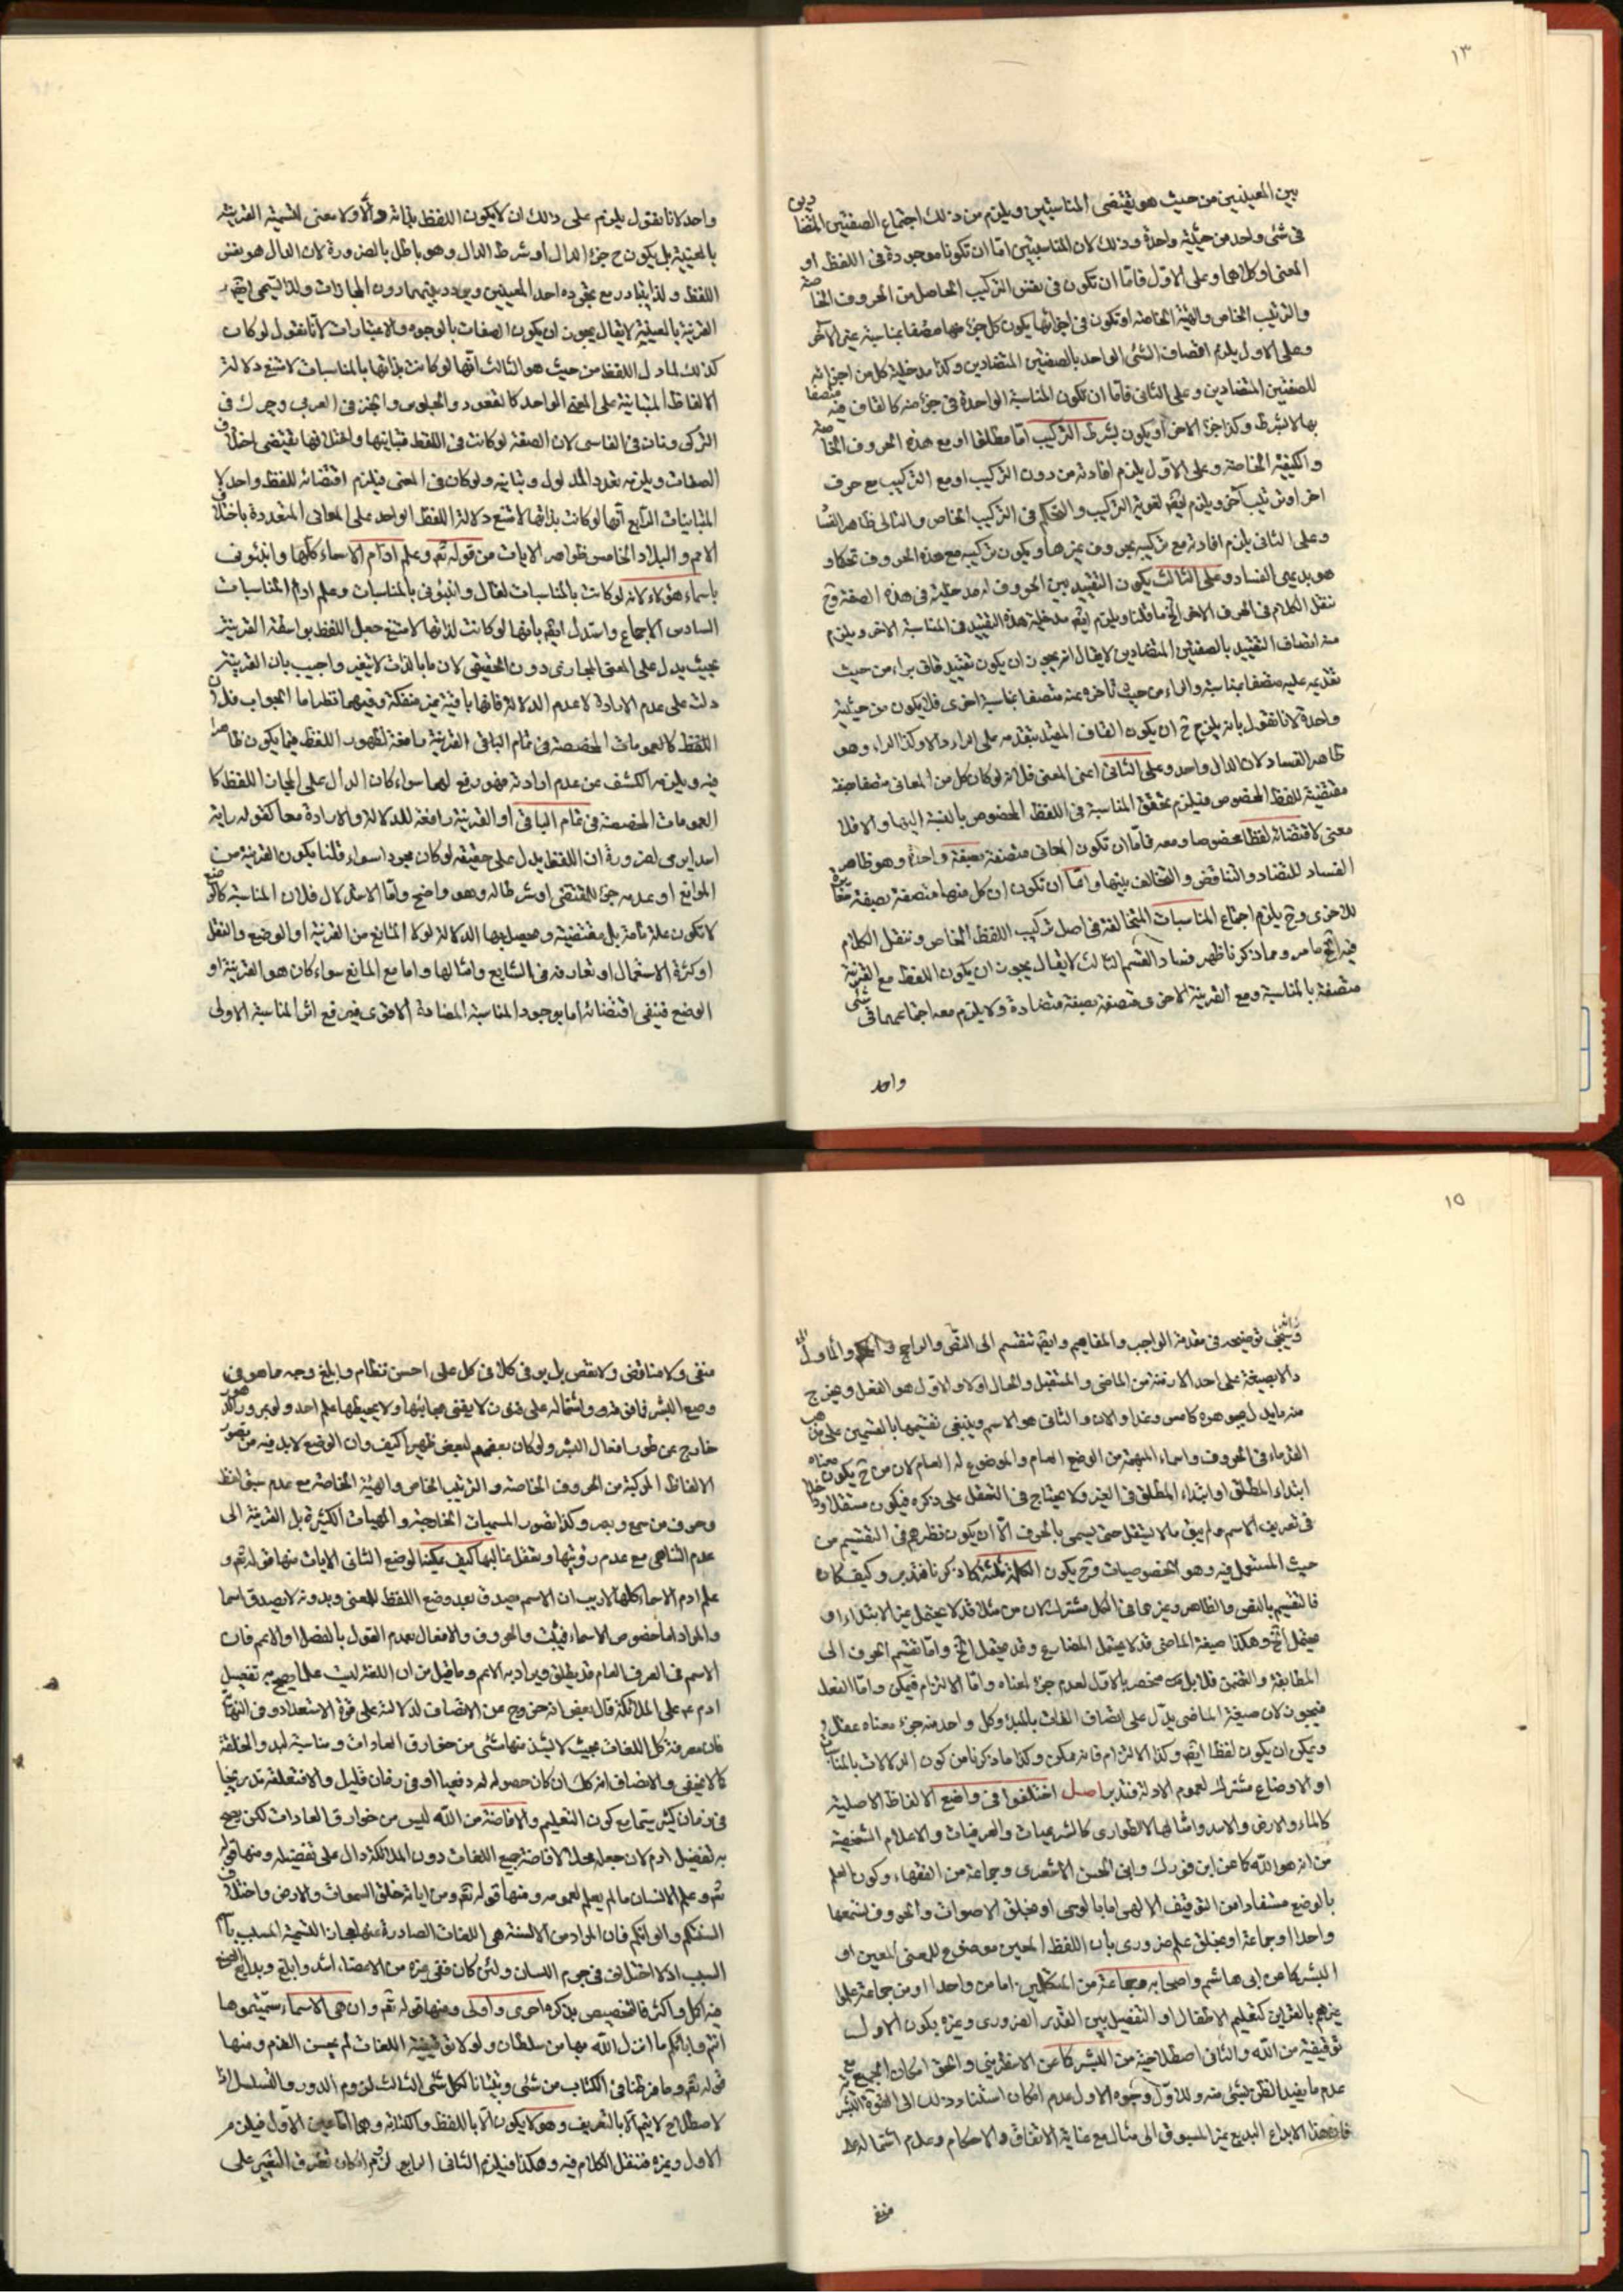 ١٣
بين المعينين من حيث هو يقتضى المناسبتين ويلزم من ذلك اجتماع الصفتين المتضادين
فى شئ واحد من حيثية واحدة وذلك لان المناسبتين اما ان تكونا موجودة فى اللفظ او
المعنى او كلاهما وعلى الاول فاما ان تكون فى نفس التركيب الحاصل من الحروف الخاصة
والترتيب الخاص والهيئة الخاصة او تكون فى اجزائها يكون كل جزء منها متصفا بمناسبة غير الآخر
وعلى الاول يلزم اتصاف الشئ الواحد بالصفتين المتضادين وكذا مدخلية كل من اجزائه
للصفتين المتضادين وعلى الثانى فاما ان تكون المناسبة الواحدة فى جزء منه كالقاف فيه متصفا
بها لا بشرط وكذا جزء الاخر او يكون بشرط التركيب اما مطلقا او مع هذه الحروف الخاصة
والكيفية الخاصة وعلى الاول يلزم افادته من دون التركيب او مع التركيب مع حرف
اخر او ترتيب آخر ويلزم ايضا لغوية التركيب والتحكم فى التركيب الخاص والتالى ظاهر الفسا
وعلى الثانى يلزم افادته مع تركيبه بحروف غيرها ويكون تركيبه مع هذه الحروف تحكما و
هو بديهى الفساد وعلى الثالث يكون التقييد بين الحروف له مدخلية فى هذه الصفة وح
ننقل الكلام فى الحرف الاخر الخ ما قلنا ويلزم ايضا مدخلية هذه التقييد فى المناسبة الاخر ويلزم
منه اتصاف التقييد بالصفتين المتضادين لا يقال انه يجوز ان يكون تقييد قاف براء من حيث
تقديمه عليه متصفا بمناسبة والراء من حيث تأخره عنه متصفا بمناسبة اخرى فلا يكون من حيثية
واحدة لانا نقول بانه يلزم ح ان يكون القاف المقيد بتقدمه على الراء دالا وكذا الراء وهو
ظاهر الفساد لان الدال واحد وعلى الثانى اعنى المعنى فلانه لو كان كل من المعانى متصفا بصفة
مقتضية للفظ المخصوص فيلزم تحقق المناسبة فى اللفظ المخصوص بالنسبة اليها والا فلا
معنى لاقتضائه لفظا مخصوصا ومعه فاما ان تكون المعانى متصفة بصفة واحدة وهو ظاهر
الفساد للتضاد والتناقض والتخالف بينها واما ان تكون ان كل منها متصفة بصفة مغايرة
للاخرى وح يلزم اجتماع المناسبات المتخالفة فى اصل تركيب اللفظ الخاص وننقل الكلام
فيه الخ ما مر ومما ذكرنا ظهر فساد القسم الثالث لا يقال يجوز ان يكون اللفظ مع القرينة
متصفة بالمناسبة ومع القرينة الاخرى متصفة بصفة متضادة ولا يلزم معه اجتماعهما فى شئ
واحد
واحد لانا نقول يلزم على ذلك ان لا يكون اللفظ بذاته دالا ولا معنى لتسمية القرينة
بالمعينة بل يكون ح جزء الدال او شرط الدال وهو باطل بالضرورة لان الدال هو نفس
اللفظ ولذا يتبادر مع تجرده احد المعينين ويردد بينهما دون المجازات ولذا يسمى ايضا
القرينة بالمعينة لا يقال يجوز ان يكون الصفات بالوجوه والاعتبارات لانا نقول لو كان
كذلك لما دل اللفظ من حيث هو الثالث انها لو كانت بذاتها بالمناسبات لامتنع دلالة
الالفاظ المتباينة على المعنى الواحد كالقعود والجلوس والخبز فى العربى وچرك فى
التركى ونان فى الفارسى لان الصفة لو كانت فى اللفظ فتباينها واختلافها يقتضى اختلاف
الصفات ويلزمه تعدد المدلول وتباينه ولو كان فى المعنى فيلزم اقتضائه للفظ واحد لا
المتباينات الرابع انها لو كانت بذاتها لامتنع دلالة اللفظ الواحد على المعانى المتعددة باختلاف
الامم والبلاد الخامس ظواهر الايات من قوله تعم وعلم ادم الاسماء كلها وانبئونى
باسماء هؤلاء لانه لو كانت بالمناسبات لقال وانبئونى بالمناسبات وعلم ادم المناسبات
السادس الاجماع واستدل ايضا بانها لو كانت لذاتها لامتنع جعل اللفظ بواسطة القرينة
بحيث يدل على المعنى المجازى دون الحقيقى لان ما بالذات لا يتغير واجيب بان القرينة
دلت على عدم الارادة لا عدم الدلالة فانها باقية غير منفكة وفيهما نظر اما الجواب فلان
اللفظ كالعمومات المخصصة فى تمام الباقى القرينة مانعة لظهور اللفظ فيما يكون ظاهرا
فيه ويلزمه الكشف عن عدم ارادته فهو رفع لهما سواء كان الدال على المجاز اللفظ كا
العمومات المخصصة فى تمام الباقى او القرينة رافعة للدلالة والارادة معا كقوله رايت
اسدا يرمى لضرورة ان اللفظ يدل على حقيقته لو كان مجردا سواء قلنا بكون القرينة من
الموانع او عدمه جزء للمقتضى او شرطا له وهو واضح واما الاستدلال فلان المناسبة كالوضع
لا تكون علة تامة بل مقتضية وحصل بها الدلالة لولا المانع من القرينة او الوضع والنقل
او كثرة الاستعمال او تعارفه فى الشايع وامثالها واما مع المانع سواء كان هو القرينة او
الوضع فينفى اقتضائه اما بوجود المناسبة المضادة الاقوى فيرفع اثر المناسبة الاولى
١٥
وسيجئ توضيحه فى مقدمة الواجب والمفاهيم وايضا تنقسم الى النص والراجح والمأول
دالا بصيغته على احد الازمنة من الماضى والمستقبل والحال اولا والاول هو الفعل ويخرج
منه ما يدل بجوهره كامس وغدا والان والثانى هو الاسم وينبغى تقسيمها بالقسمين على مذهب
القدماء فى الحروف واسماء المبهمة من الوضع العام والموضوع له العام لان من ح يكون معناه
ابتداء المطلق او ابتداء المطلق فى الغير ولا يحتاج فى التعقل على ذكره فيكون مستقلا وداخلا
فى تعريف الاسم ولم يبق ما لا يستقل حتى يسمى بالحرف الا ان يكون نظرهم فى التقسيم من
حيث المستعمل فيه وهو الخصوصيات وح يكون الكلمة ثلثة كما ذكرنا فتدبر وكيف كان
فالتقسيم بالنص والظاهر وغيرهما فى الكل مشترك لان من مثلا قد لا يحتمل غير الابتداء او
يحتمل الخ وهكذا صيغة الماضى قد لا يحتمل المضارع وقد يحتمل الخ واما تقسيم الحروف الى
المطابقة والتضمن فلا بل مختص بالاول لعدم جزء لمعناه واما الالتزام فيمكن واما الفعل
فيجوز لان صيغة الماضى يدل على اتصاف الذات بالمبدء وكل واحد منه جزء معناه عقلا و
ويمكن ان يكون لفظا ايضا وكذا الالتزام فانه ممكن وكذا ما ذكرنا من كون الدلالات بالمناسبة
او الاوضاع مشترك لعموم الادلة فتدبر اصل اختلفوا فى واضع الالفاظ الاصلية
كالماء والارض والاسد وامثالها لا الطوارى كالشرعيات والعرفيات والاعلام الشخصية
من انه هو الله كما عن ابن فورك وابى الحسن الاشعرى وجماعة من الفقهاء وكون العلم
بالوضع مستفادا من التوقيف الالهى اما بالوحى او بخلق الاصوات والحروف لتسمعها
واحدا او جماعة او بخلق علم ضرورى بان اللفظ المعين موضوع للمعنى المعين او
البشر كما عن ابى هاشم واصحابه وجماعة من المتكلمين اما من واحدا او من جماعة علموا
غيرهم بالقرائن كتعليم الاطفال او التفصيل بين القدر الضرورى وغيره بكون الاول
توقيفية من الله والثانى اصطلاحية من البشر كما عن الاسفراينى والحق امكان الجميع مع
عدم ما يفيد الظن بشئ منه وللاول وجوه الاول عدم امكان استناد ذلك الى القوة البشرية
فان هذا الابداع البديع غير المسبوق الى مثال مع غاية الاتفاق والاحكام وعدم اشتماله على
منفى
منفى ولا مناقض ولا نقص بل يوفى كلا فى كل على احسن نظام وابلغ وجه ما هو فى
وسع البشر فما فوقه واشتماله على فنون لا يفنى عجائبها ولا يحيط بها علم احد ولو بمرور الدهور
خارج عن طور افعال البشر ولو كان بعضهم لبعض ظهيرا كيف وان الوضع لا بد فيه من تصور
الالفاظ المركبة من الحروف الخاصة والترتيب الخاص والهيئة الخاصة مع عدم سبق لفظ
وحرف من سمع وبصر وكذا تصور المسميات الخارجية والمهيات الكثيرة بل القريبة الى
عدم التناهى مع عدم رؤيتها وتعقل غالبها كيف يمكننا لوضع الثانى الايات منها قوله تعم و
علم ادم الاسماء كلها لا ريب ان الاسم يصدق بعد وضع اللفظ للمعنى وبدونه لا يصدق اسما
والمراد اما خصوص الاسماء فيثبت والحروف والافعال بعدم القول بالفصل او الاعم فان
الاسم فى العرف العام قد يطلق ويراد به الاعم وما قيل من ان اللغة ليست علما يصح به تفضيل
ادم عم على الملائكة قال بعض انه خروج عن الانصاف لدلالته على قوة الاستعداد وفى النهاية
فان معرفة كل اللغات بحيث لا يشذ منها شئ من خوارق العادات ومناسبة لبدو الخلقة
كما لا يخفى والانصاف انه كذلك ان كان حصوله له دفعيا او فى زمان قليل والا فتعلمه تدريجا
فى زمان كثير سيما مع كون التعليم والافاضة من الله ليس من خوارق العادات لكن يصح
به تفضيل ادم لان جعله محلا لافاضة جميع اللغات دون الملائكة دال على تفضيله ومنها قوله
تعم وعلم الانسان ما لم يعلم لعمومه ومنها قوله تعم ومن اياته خلق السموات والارض واختلاف
السنتكم والوانكم فان المراد من الالسنة هى اللغات الصادرة عنها مجاز التسمية المسبب باسم
السبب اذ لا اختلاف فى جرم اللسان ولئن كان ففى غيره من الاعضاء اشد وابلغ وبدايع الصنع
فيه اكمل واكثر فالتخصيص بذكره احرى واولى ومنها قوله تعم وان هى الا اسماء سميتموها
انتم وابائكم ما انزل الله بها من سلطان ولولا توقيفية اللغات لم يحسن الذم ومنها
قوله تعم وما فرطنا فى الكتاب من شئ وتبيانا لكل شئ الثالث لزوم الدور والتسلسل لان
الاصطلاح لا يتم الا بالتعريف وهو لا يكون الا باللفظ والكتابة وهما اما عين الاول فيلزم
الاول وغيره فننقل الكلام فيه وهكذا فيلزم الثانى الرابع لزوم امكان تطرق التغيير على